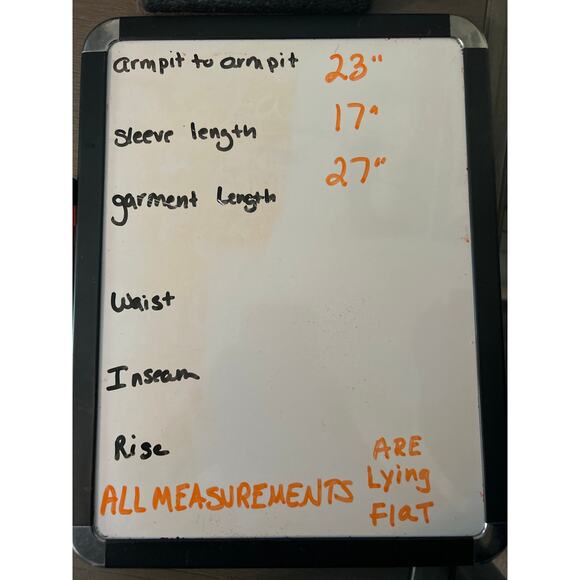 armpit to armpit 23"
sleeve length 17"
garment Length 27"
Waist
Inseam
Rise
ALL MEASUREMENTS ARE
Lying
FlaT